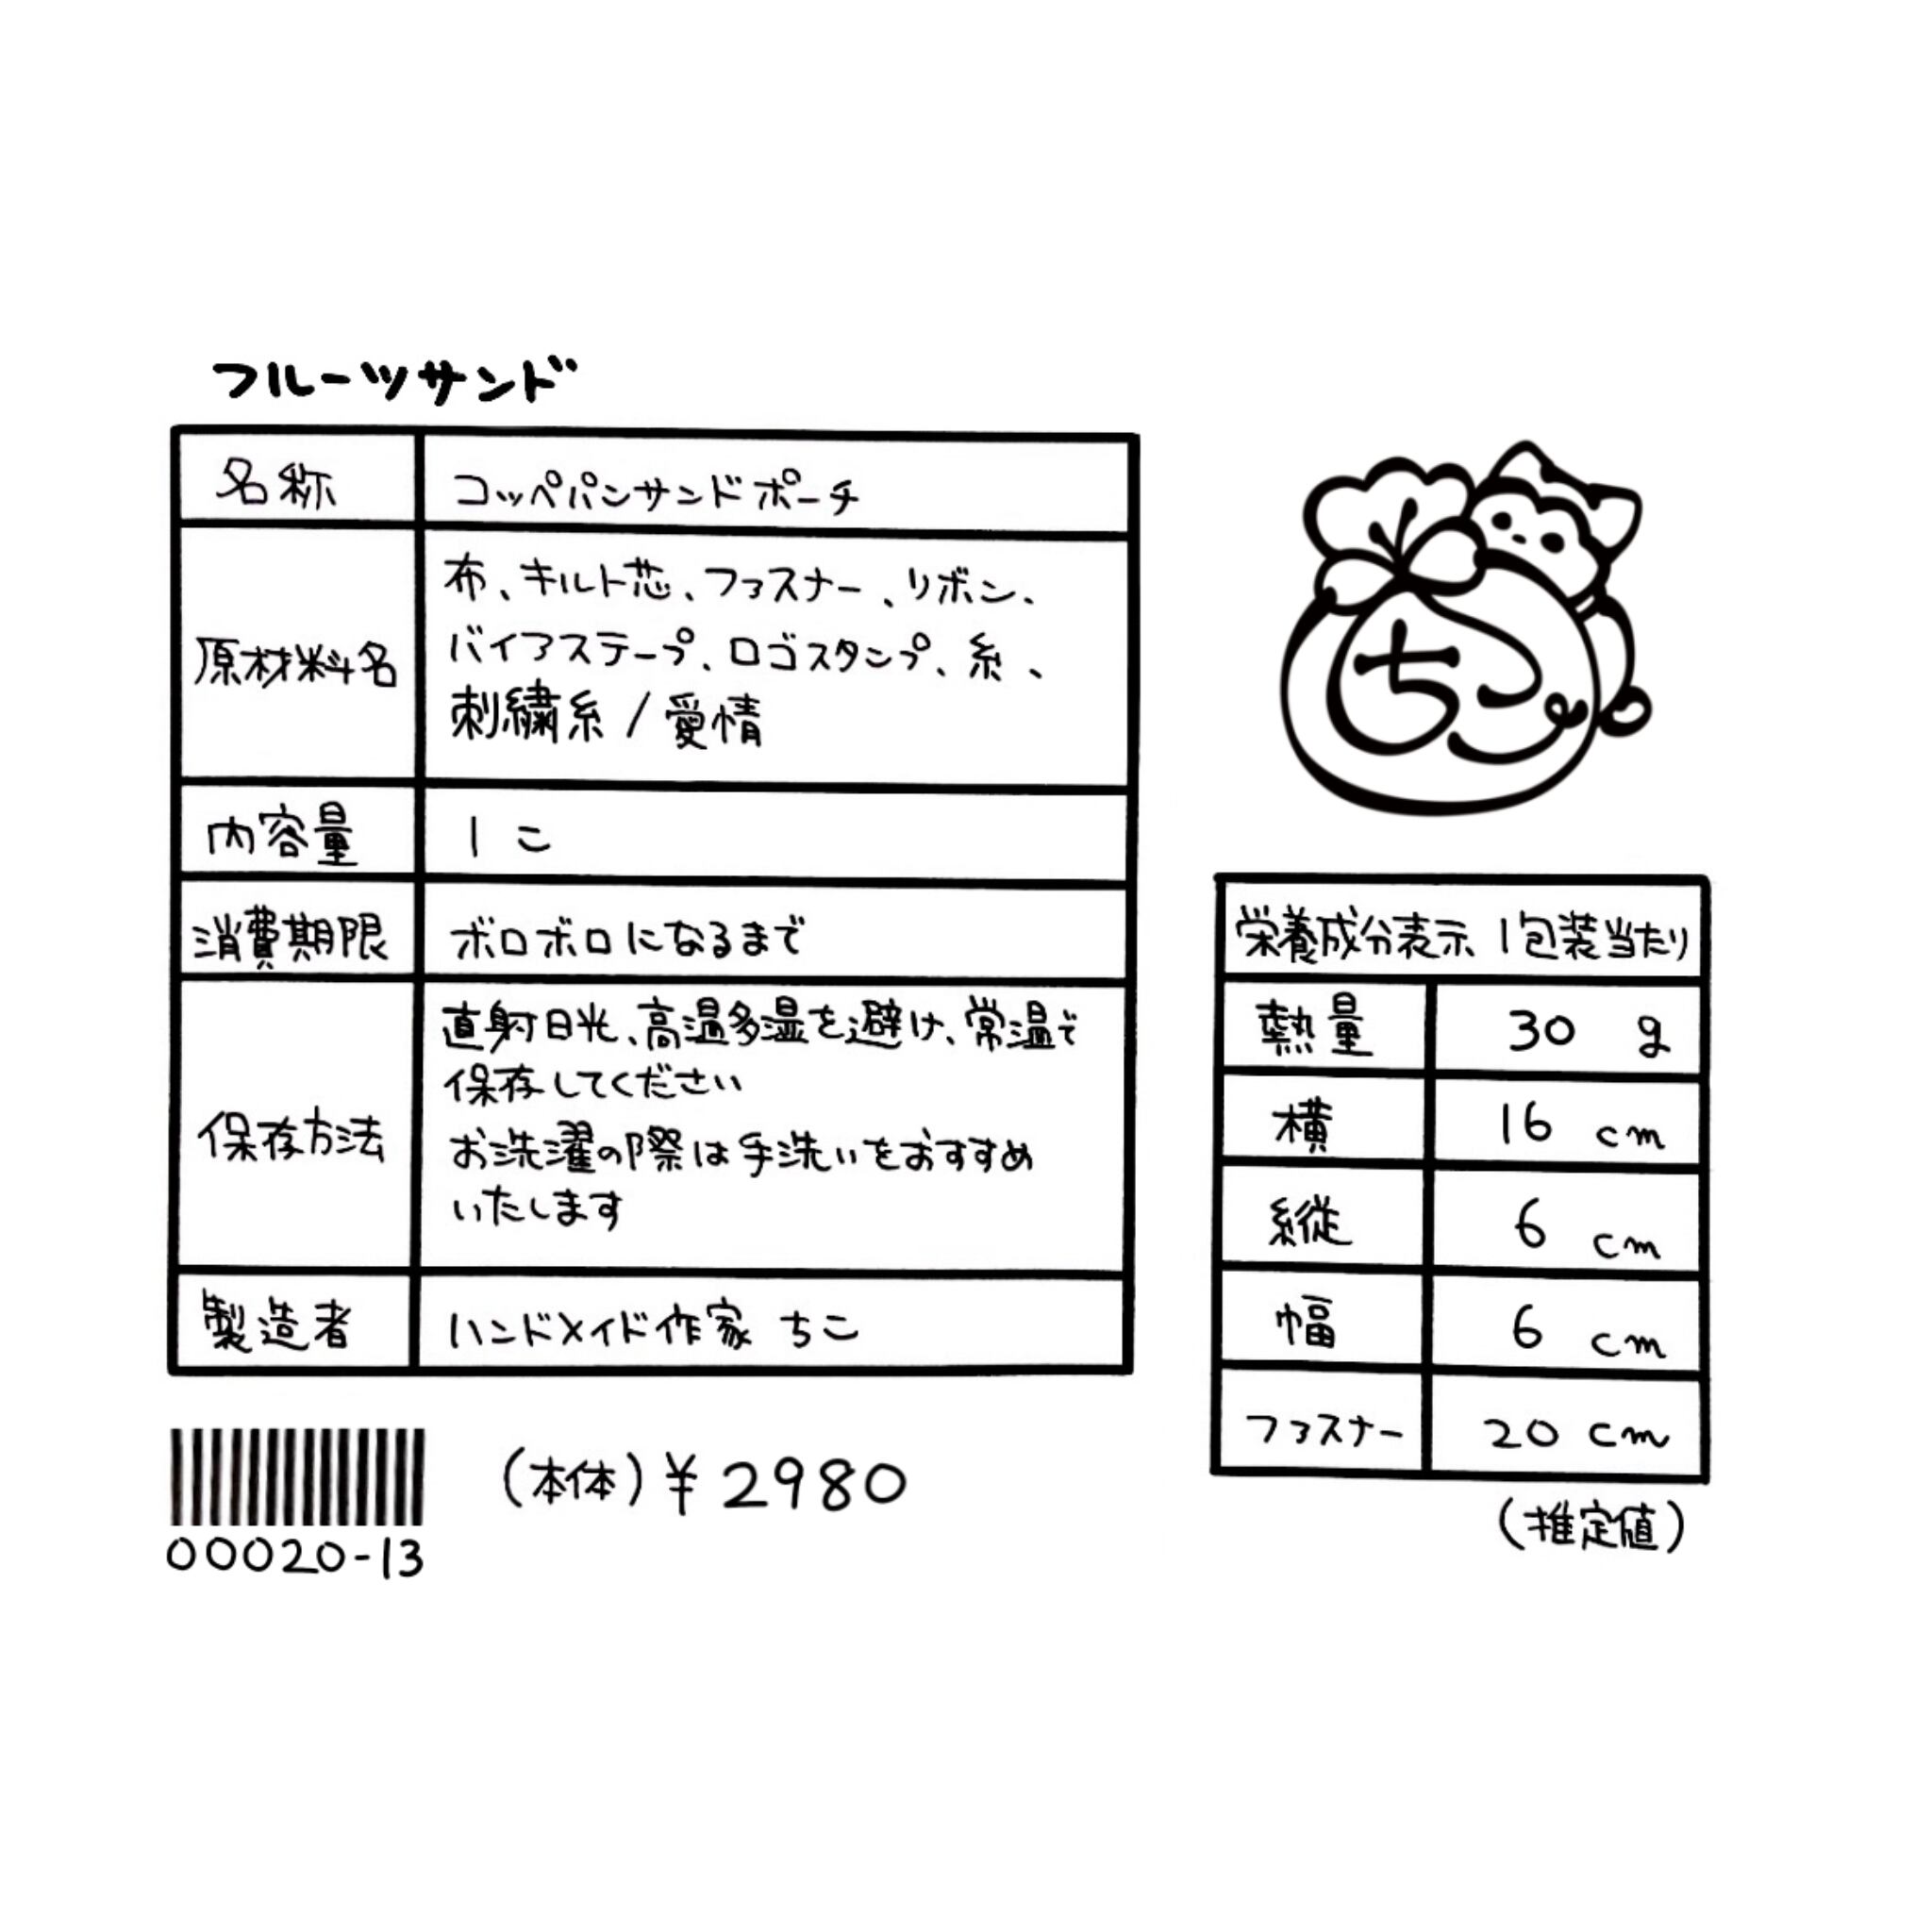 フルーツサンド
名称 コッペパンサンドポーチ
原材料名 布、キルト芯、ファスナー、リボン、
バイアステープ、ロゴスタンプ、糸、
刺繍糸/愛情
内容量 1こ
消費期限 ボロボロになるまで
保存方法 直射日光、高温多湿を避け、常温で
保存してください
お洗濯の際は手洗いをおすすめ
いたします
製造者 ハンドメイド作家 ちこ
00020-13
(本体)¥2980
ちこ
栄養成分表示 1包装当たり
熱量 30 g
横 16 cm
縦 6 cm
幅 6 cm
ファスナー 20 cm
(推定値)